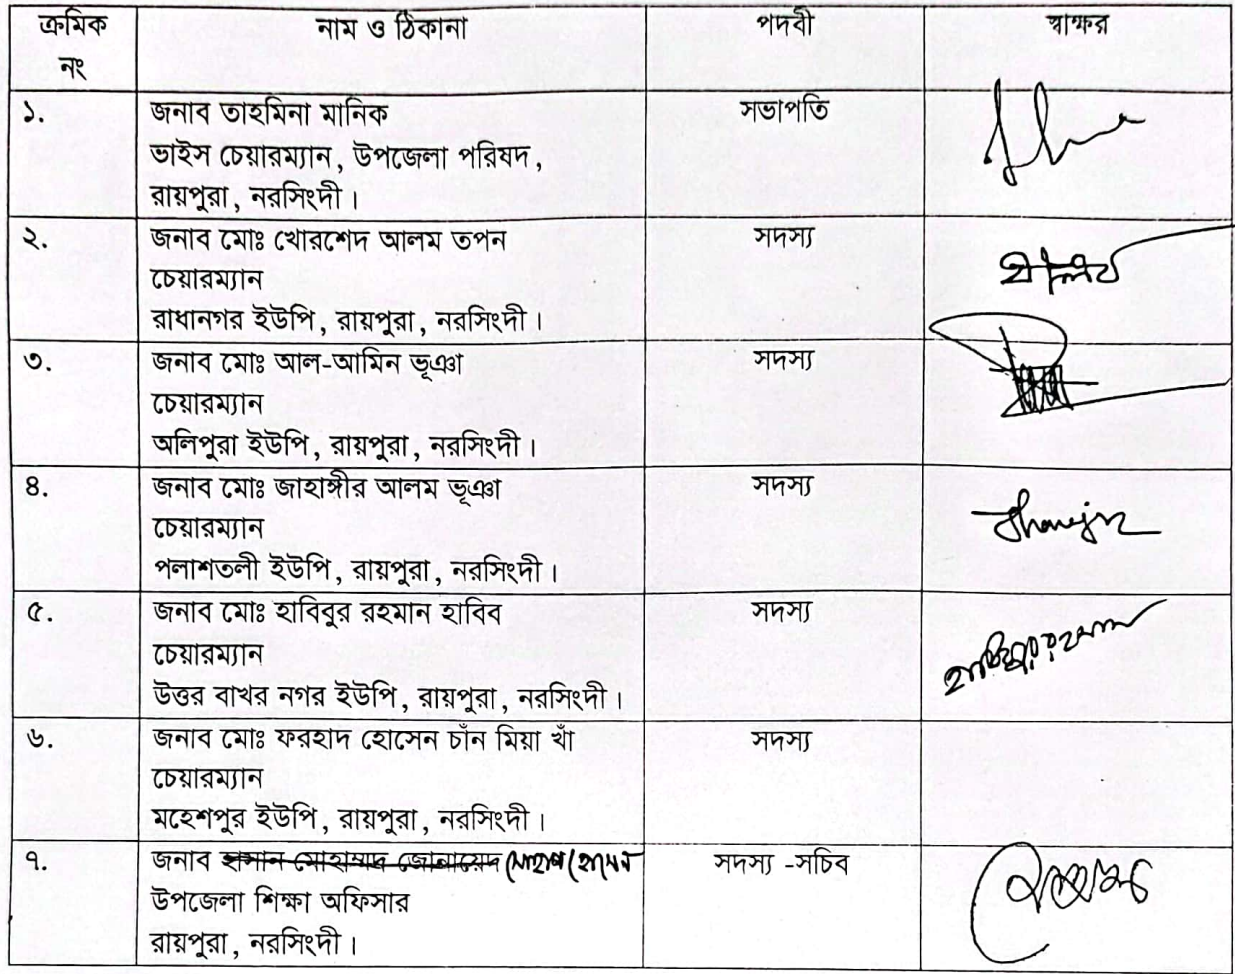 ক্রমিক নং নাম ও ঠিকানা পদবী স্বাক্ষর
১. জনাব তাহমিনা মানিক সভাপতি
ভাইস চেয়ারম্যান, উপজেলা পরিষদ,
রায়পুরা, নরসিংদী।
২. জনাব মোঃ খোরশেদ আলম তপন সদস্য
চেয়ারম্যান
রাধানগর ইউপি, রায়পুরা, নরসিংদী।
৩. জনাব মোঃ আল-আমিন ভূঞা সদস্য
চেয়ারম্যান
অলিপুরা ইউপি, রায়পুরা, নরসিংদী।
৪. জনাব মোঃ জাহাঙ্গীর আলম ভূঞা সদস্য
চেয়ারম্যান
পলাশতলী ইউপি, রায়পুরা, নরসিংদী।
৫. জনাব মোঃ হাবিবুর রহমান হাবিব সদস্য
চেয়ারম্যান
উত্তর বাখর নগর ইউপি, রায়পুরা, নরসিংদী।
৬. জনাব মোঃ ফরহাদ হোসেন চাঁন মিয়া খাঁ সদস্য
চেয়ারম্যান
মহেশপুর ইউপি, রায়পুরা, নরসিংদী।
৭. জনাব হাসান মোহাম্মদ জোনায়েদ সদস্য -সচিব
উপজেলা শিক্ষা অফিসার
রায়পুরা, নরসিংদী।